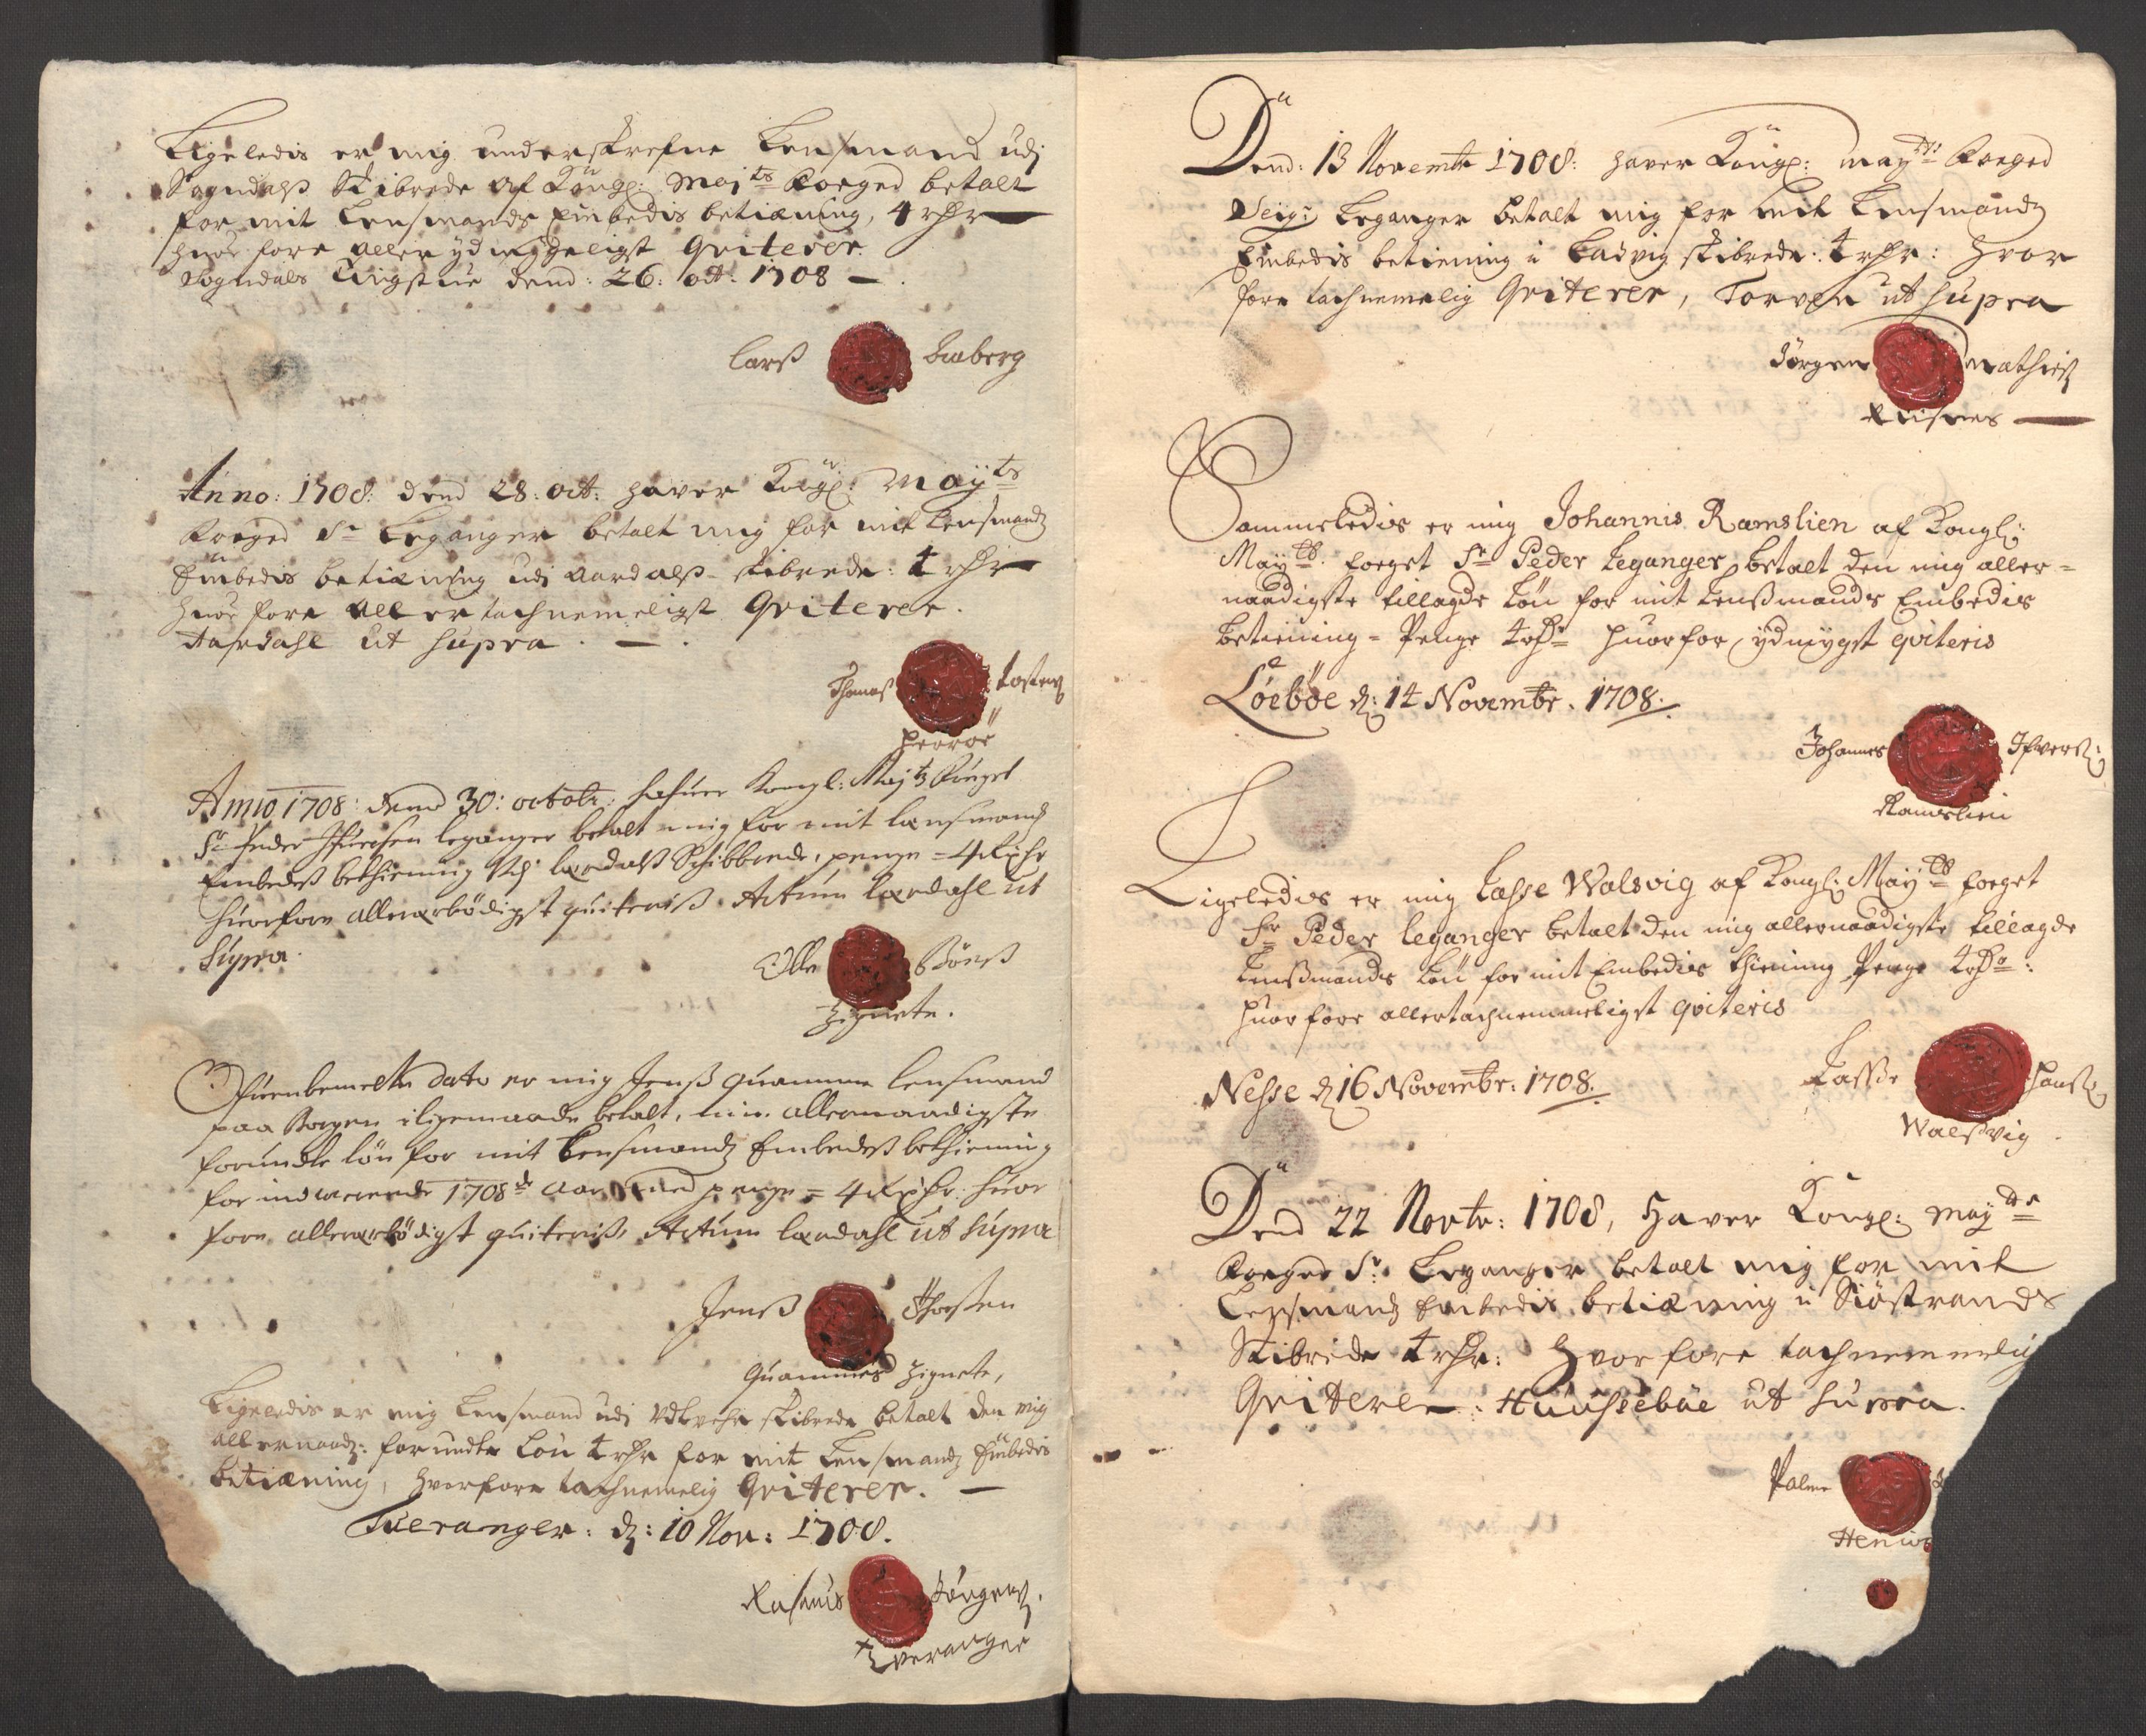 Ligeledis er mig underskrefne Lensmand udj
Sogndals Skibrede af Kongl: Mayts Foeged betalt
for mit Lensmands Embedis betiening, 4 rdr
huor fore aller ydmygeligst Qviterer.
Sogndals tingstue dend: 26: oct: 1708 —
Larß Aaberg
Anno: 1708: dend 28: oct: haver Kongl: Mayts
Foeged Sr Leganger betalt mig for mit Lensmands
Embedis betiening udi Aardals skibrede: 4 rdr
huor fore aller tachnemeligst Qviterer.
Aardahl ut supra. —
Thomas
Anno 1708: dend 30: octobr: hafuer Kongl: Maytz Fouget
Sr Peder Ifuersen leganger betalt mig for mit lensmands
Embedeß bethiening Vdj lærdalß Schibbrede, penge = 4 Rixdr
huorfore allerærbödigst quiteriß. Actum Lærdahl ut
Supra.
Olle Börß
Zignete.
Ofuenbemelte dato er mig Jenß Quamme lensmand
paa Borgen i ligemaade betalt, min allernaadigste
forundte lön for mit Lensmands Embedeß bethiening
for indeværende 1708de Aar med penge = 4 Rixdr: huor
fore allerærbödigst quiteriß, Actum lærdahl ut supra
Jenß Thorsten
Quammes Zignete,
Ligeledis er mig Lensmand udi Vdtvehr skibrede betalt den mig
allernaadg: forundte Lön 4 rdr for mit Lensmands Embedis
betiening, hvorfore tachnemelig Qviterer. —
Tueranger: d: 10 Nov: 1708.
Rasmus Jörgens.
Tveranger
Dend: 13 Novembr 1708: haver Kongl: Mayts: Foeged
Seigr Leganger betalt mig for mit Lensmands
Embedis betiening i Ladvig skibrede: 4 rdr: hvor
fore tachnemelig Qviterer, Torven ut supra
Jörgen Mathies
Riisnes —
Sammeledis er mig Johannis Ramslien af Kongl:
Mayts. foeget Sr Peder Leganger betalt den mig aller=
naadigste tillagde Lön for mit Lenßmands Embedis
betiening = Penge 4 rdr huorfor ydmygst qviteris
Löeböe d: 14 Novembr. 1708.
Johannes Ifverß:
Ramslien
Ligeledis er mig Lasse Walsvig af Kongl: Mayts foeget
Sr Peder leganger betalt den mig allernaadigste tillagde
Lenßmands Lön for mit Embedies thiening Penge 4 rdr:
huor fore allertachnemmeligst qviteris
Nesse d 16 Novembr: 1708.
Lasse Hanß
Walßvig
Dend 22 Novbr: 1708, Haver Kongl: Mayts
Foeged Sr. Leganger betalt mig for mit
Lensmands Embedis betiening i Siöstrands
Skibrede 4 rdr: hvor fore tachnemmelig
Qviterer: Huuseböe ut supra.
Palme
Henius